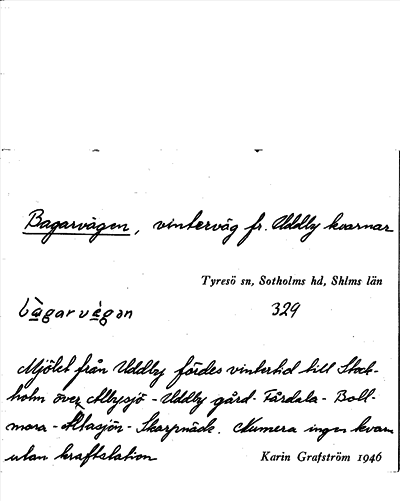 Bagarvägen, vinterväg fr. Uddby kvarnar
Tyresö sn, Sotholms hd, Shlms län
bàgarvä̀gən 329
Mjölet från Uddby fördes vintertid till Stock-
holm över Albysjö - Uddby gård - Fårdala - Boll-
mora - Ältasjön - Skarpnäck. Numera ingen kvarn
utan kraftstation
Karin Grafström 1946